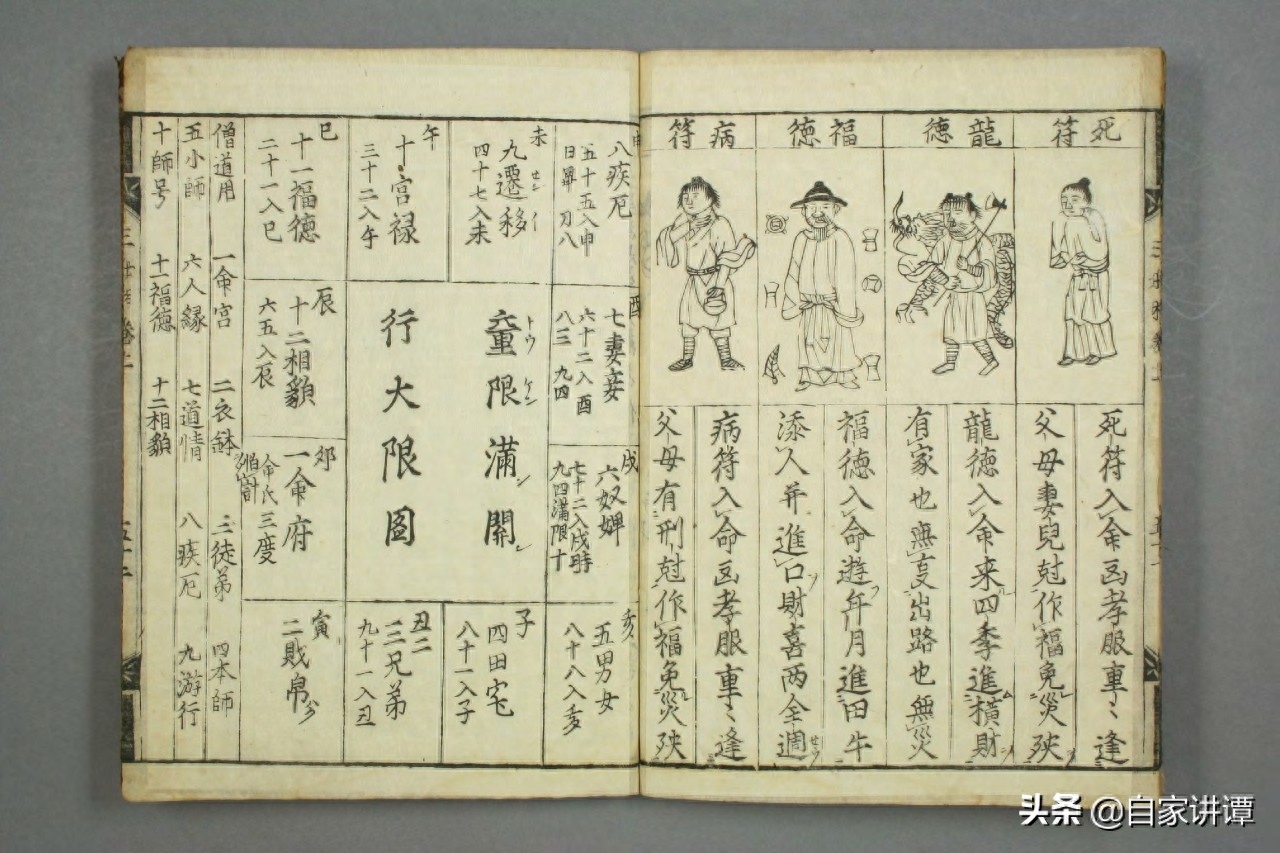 死符
龍德
福德
病符
死符入命凶孝服重〻逢
父母妻兒尅作福免災殃
龍德入命来四季進橫財
有家也無
出路也無災
福德入命遊年月進田牛
添人并進口財喜两全週
病符入命凶孝服重〻逢
父母有刑尅作福免災殃
申
八疾厄
五十五入申
未
九遷移
セン イ
四十七入未
午
十宮禄
三十二入午
巳
十一福德
二十一入巳
酉
七妻妾
六十二入酉
八三 九四
童限滿關
行大限図
辰
十二相貌
六五入辰
戌
六奴婢
七十二入戌時
九四滿限十
卯
一命府
三度
亥
五男女
八十八入亥
子
四田宅
八十一入子
丑二
三兄弟
九十一入丑
寅
二財帛
僧道用 一命宮 二衣鉢 三徒弟 四本師
五小師 六人緣 七道情 八疾厄 九游行
十師号 十一福德 十二相貌
头条 @自家讲谭